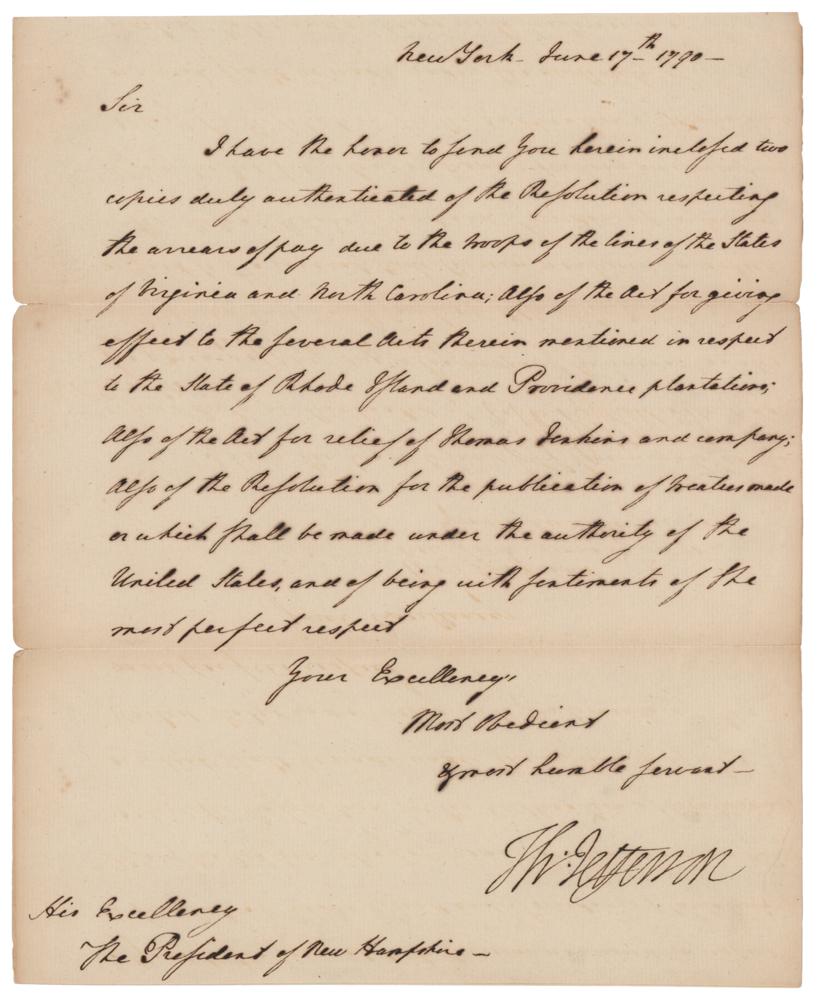 New York June 17th 1790—
Sir
I have the honor to send you herein inclosed two
copies duly authenticated of the Resolution respecting
the arrears of pay due to the troops of the lines of the States
of Virginia and North Carolina; Also of the Act for giving
effect to the several Acts therein mentioned in respect
to the State of Rhode Island and Providence plantations;
Also of the Act for relief of Thomas Jenkins and company;
Also of the Resolution for the publication of treaties made
or which shall be made under the authority of the
United States, and of being with sentiments of the
most perfect respect
Your Excellency's
Most Obedient
& most humble servant—
Th: Jefferson
His Excellency
The President of New Hampshire—